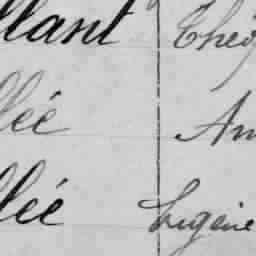 llant Théo
llée Am
llée Eugène